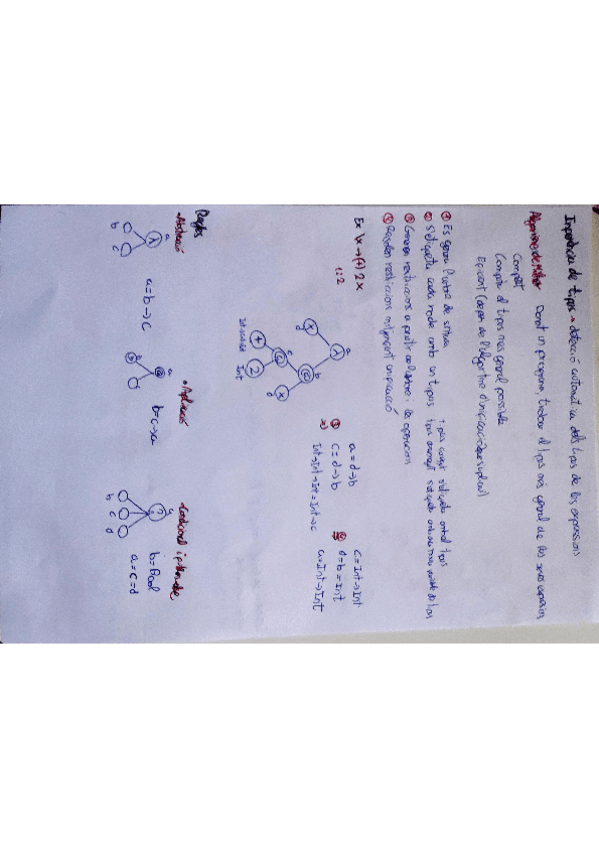 Inferència de tipus → detecció automàtica dels tipus de les expressions
Algorisme de Milner Donat un programa, trobar el tipus més general de les seves expressions
Complet
Computa el tipus més general possible
Eficient (depèn de l'algorisme d'unificació que s'apliqui)
① Es genera l'arbre de sintaxi
② S'etiqueta cada node amb un tipus
tipus conegut s'etiqueta amb el tipus
③ Generen restriccions a partir de l'arbre i les operacions
④ Resolen restriccions mitjançant unificació
Ex \x → (+) 2 x
1 i 2
λ a
x d
@ b
@ c
x d
+
2
Int
③
a = d → b
c = d → b
Int → Int → Int = Int → c
④
c = Int → Int
d = b = Int
a = Int → Int
Regles
• Abstracció
λ a
b c
a = b → c
• Aplicació
@ a
b c
b = c → a
• Condicional if then else
? a
b c d
b = Bool
a = c = d